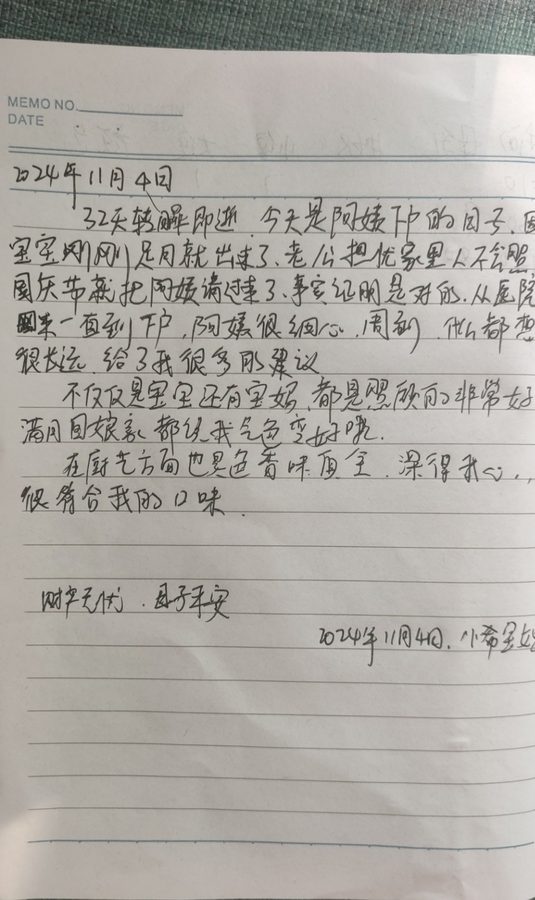 MEMO NO.
DATE
2024年11月4日
32天转瞬即逝，今天是阿姨下户的日子，因
宝宝刚刚足月就出来了、老公担忧家里人不会照
国庆节就把阿姨请过来了、事实证明是对的、从医院
回来一直到下户，阿姨很细心、周到，什么都想
很长远、给了我很多的建议
不仅仅是宝宝还有宝妈，都是照顾的非常好
满月回娘家都说我气色变好哦.
在厨艺方面也是色香味俱全、深得我心..
很符合我的口味.
母子平安
2024年11月4日. 小希宝妈